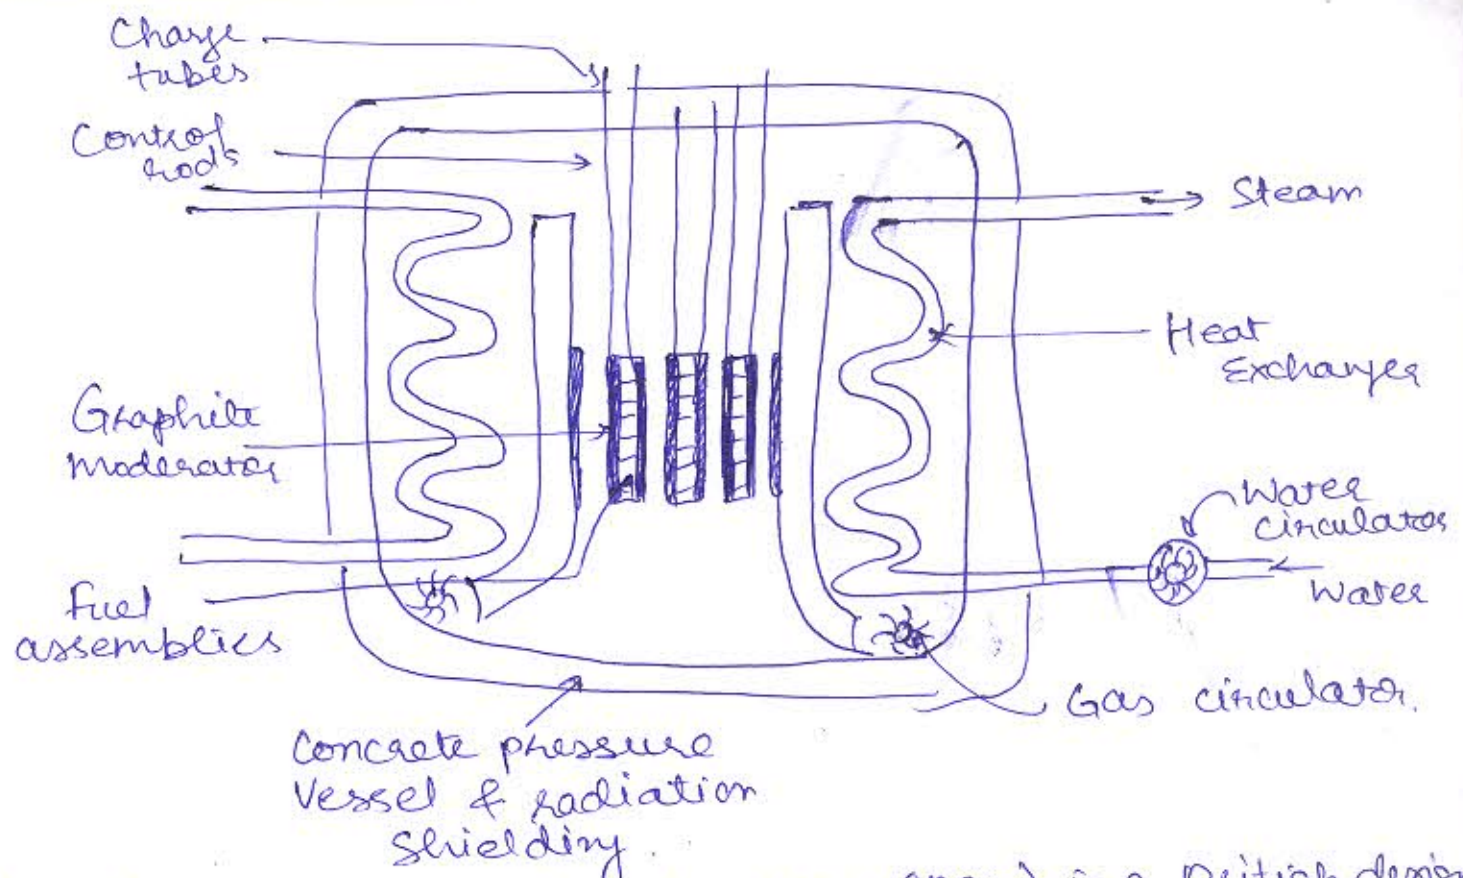 Charge
tubes
Control
rods
Steam
Heat
Exchanger
Graphite
moderator
Water
circulator
Water
Fuel
assemblies
Gas circulator.
Concrete pressure
Vessel & radiation
Shielding.
is a British design